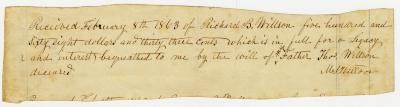 Received February 8th 1863 of Richard B. Willson five hundred and
Sixty eight dollars and thirty three cents which is in full for a Legacy
and interest bequathed to me by the will of Father Thos Willson
deceased